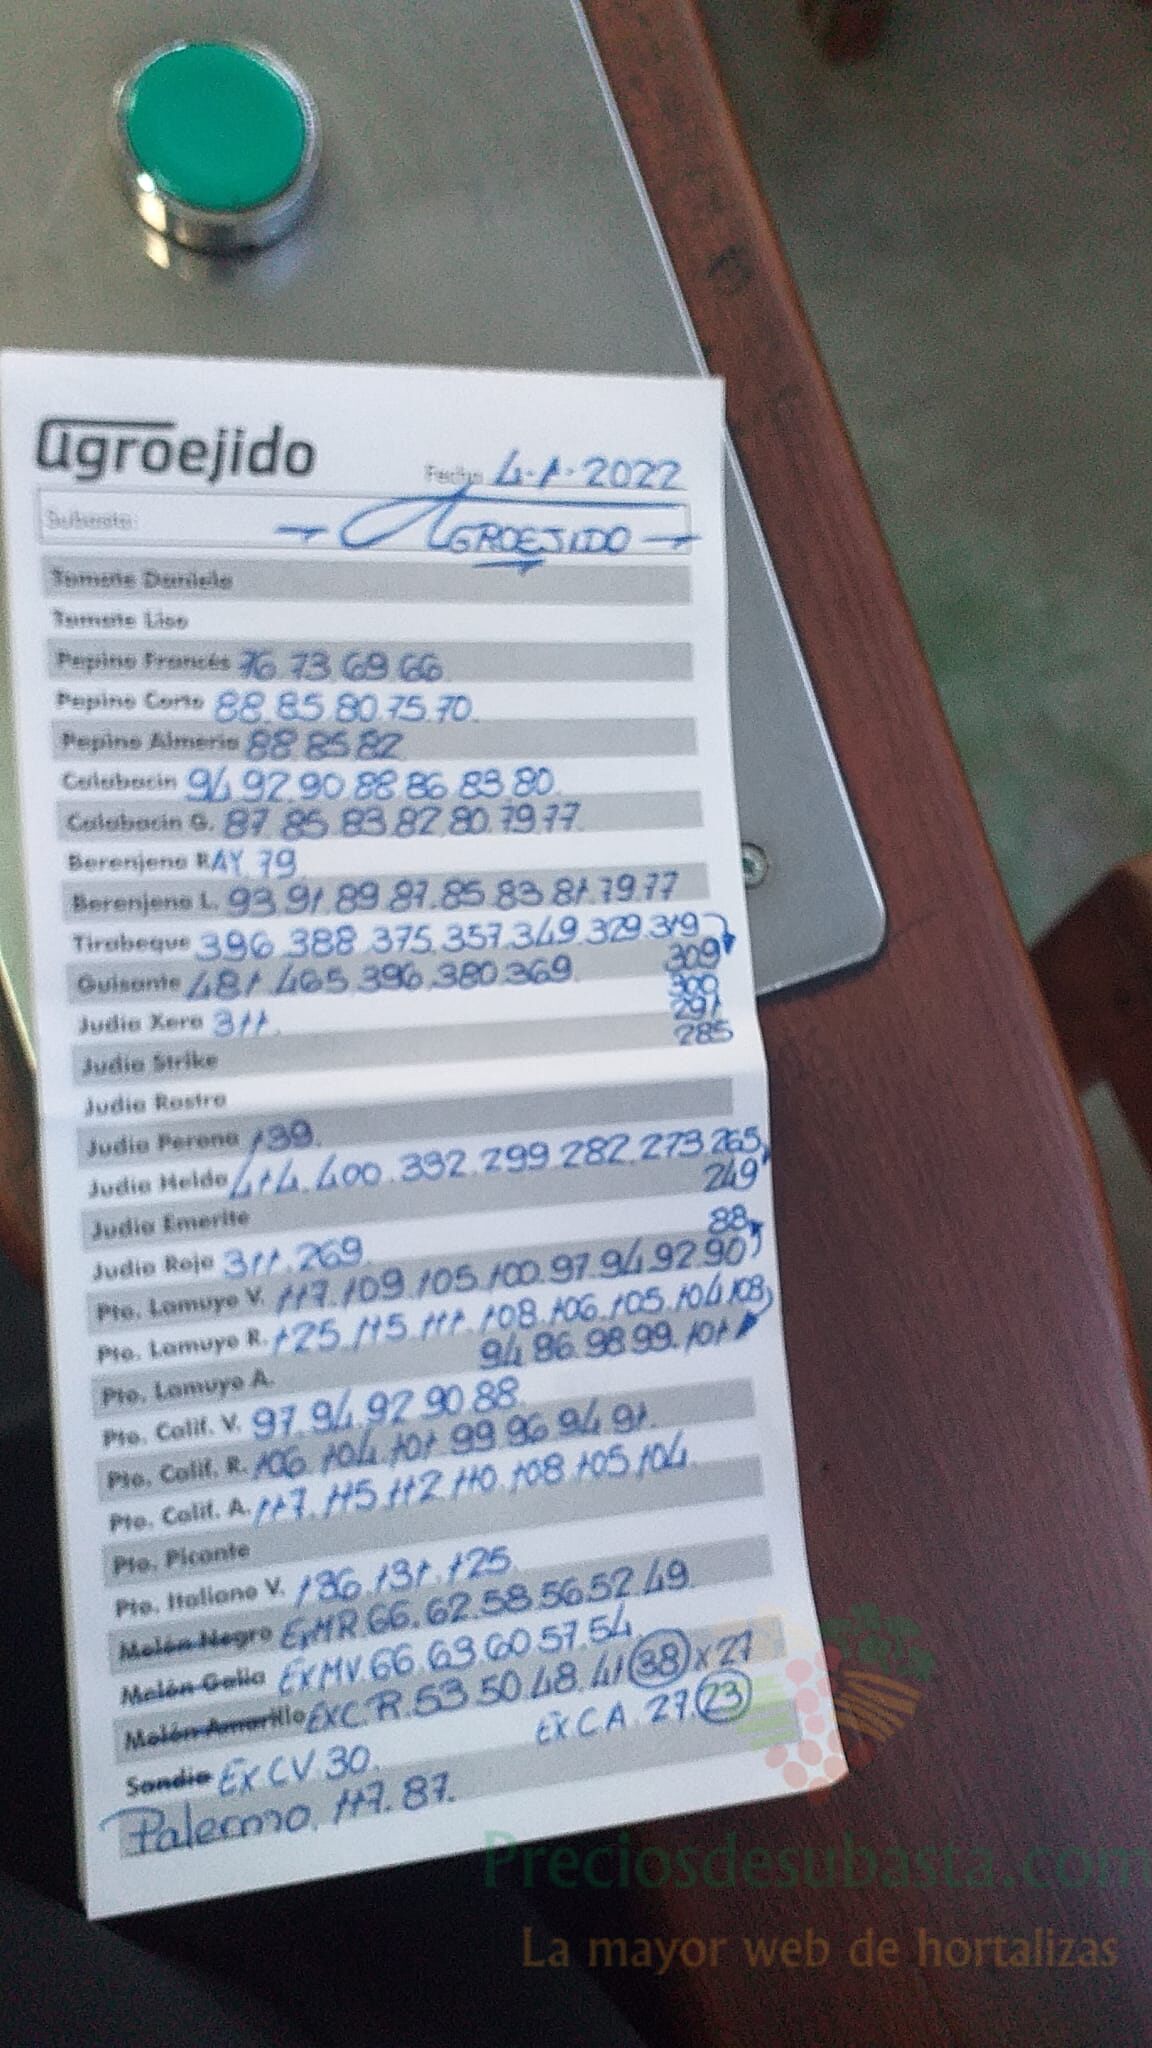 agroejido
Fecha 4-1-2022
Subasta: → AGROEJIDO →
Tomate Daniela
Tomate Liso
Pepino Francés 76.73.69.66
Pepino Corto 88.85.80.75.70.
Pepino Almeria 88.85.82
Calabacin 94.92.90.88.86.83.80.
Calabacin G. 87.85.83.82.80.79.77.
Berenjena RAY.79
Berenjena L. 93.91.89.87.85.83.81.79.77
Tirabeque 396.388.375.357.349.329.319
309
Guisante 481.465.396.380.369.
300
291
Judia Xera 311.
285
Judia Strike
Judia Rastra
Judia Perona 139.
Judia Helda 414.400.332.299.282.273.265
249
Judia Emerite
Judia Roja 311.269.
88
Pto. Lamuyo V. 117.109.105.100.97.94.92.90
Pto. Lamuyo R. 125.115.111.108.106.105.104.103
94.86.98.99.101
Pto. Lamuyo A.
Pto. Calif. V. 97.94.92.90.88.
Pto. Calif. R. 106.104.101.99.96.94.91.
Pto. Calif. A. 117.115.112.110.108.105.104.
Pto. Picante
Pto. Italiano V. 136.131.125.
Melón Negro ExMR.66.62.58.56.52.49.
Melón Galia ExMV.66.63.60.57.54
Melón Amarillo EXC.R.53.50.48.41 38 x 27
Sandia Ex CV.30. Ex C A. 27. 23
Palermo. 117.87.
Preciosdesubasta.com
La mayor web de hortalizas